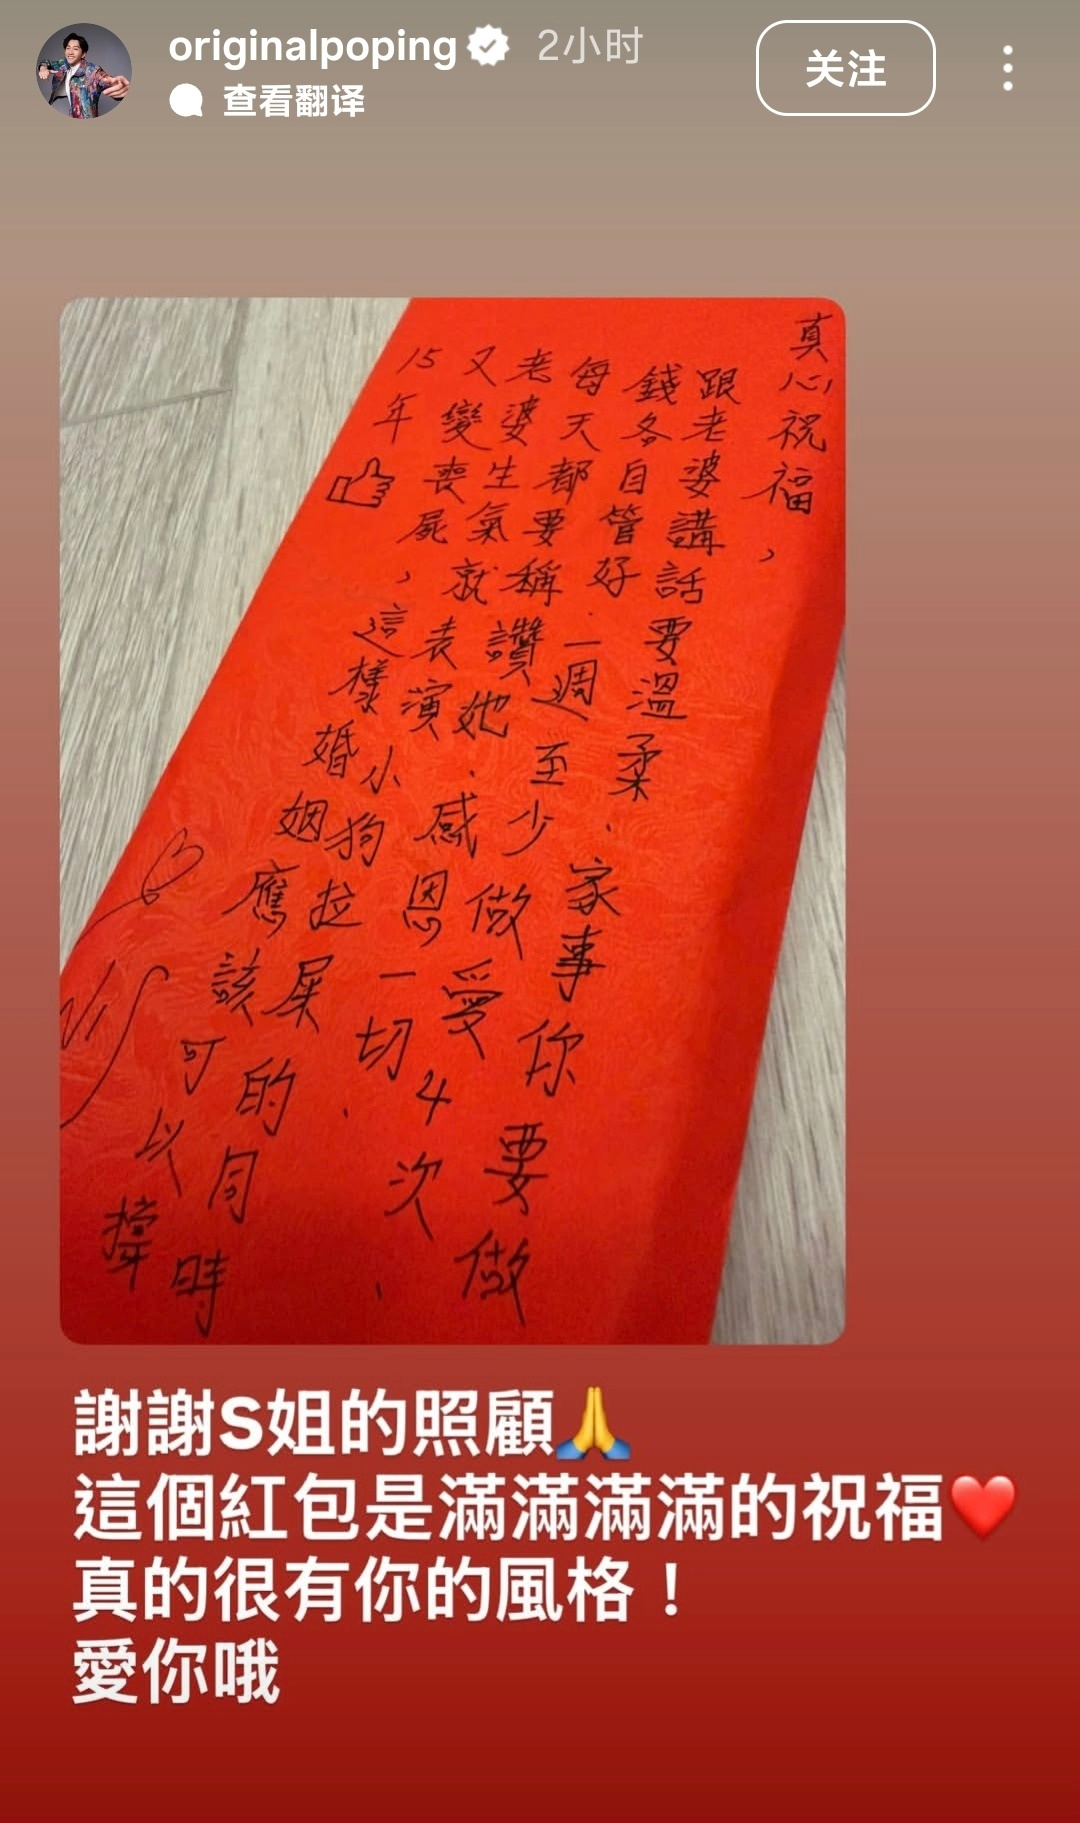 originalpoping 2小时
查看翻译
关注
真心祝福,
跟老婆講話要溫柔.家事你要做
錢各自管好.一週至少做愛4次.
每天都要稱讚她.感恩一切.
老婆生氣就表演小狗拉屎的同時
又變喪屍,這樣婚姻應該可以撐
15年
謝謝S姐的照顧🙏
這個紅包是滿滿滿滿的祝福❤️
真的很有你的風格！
愛你哦